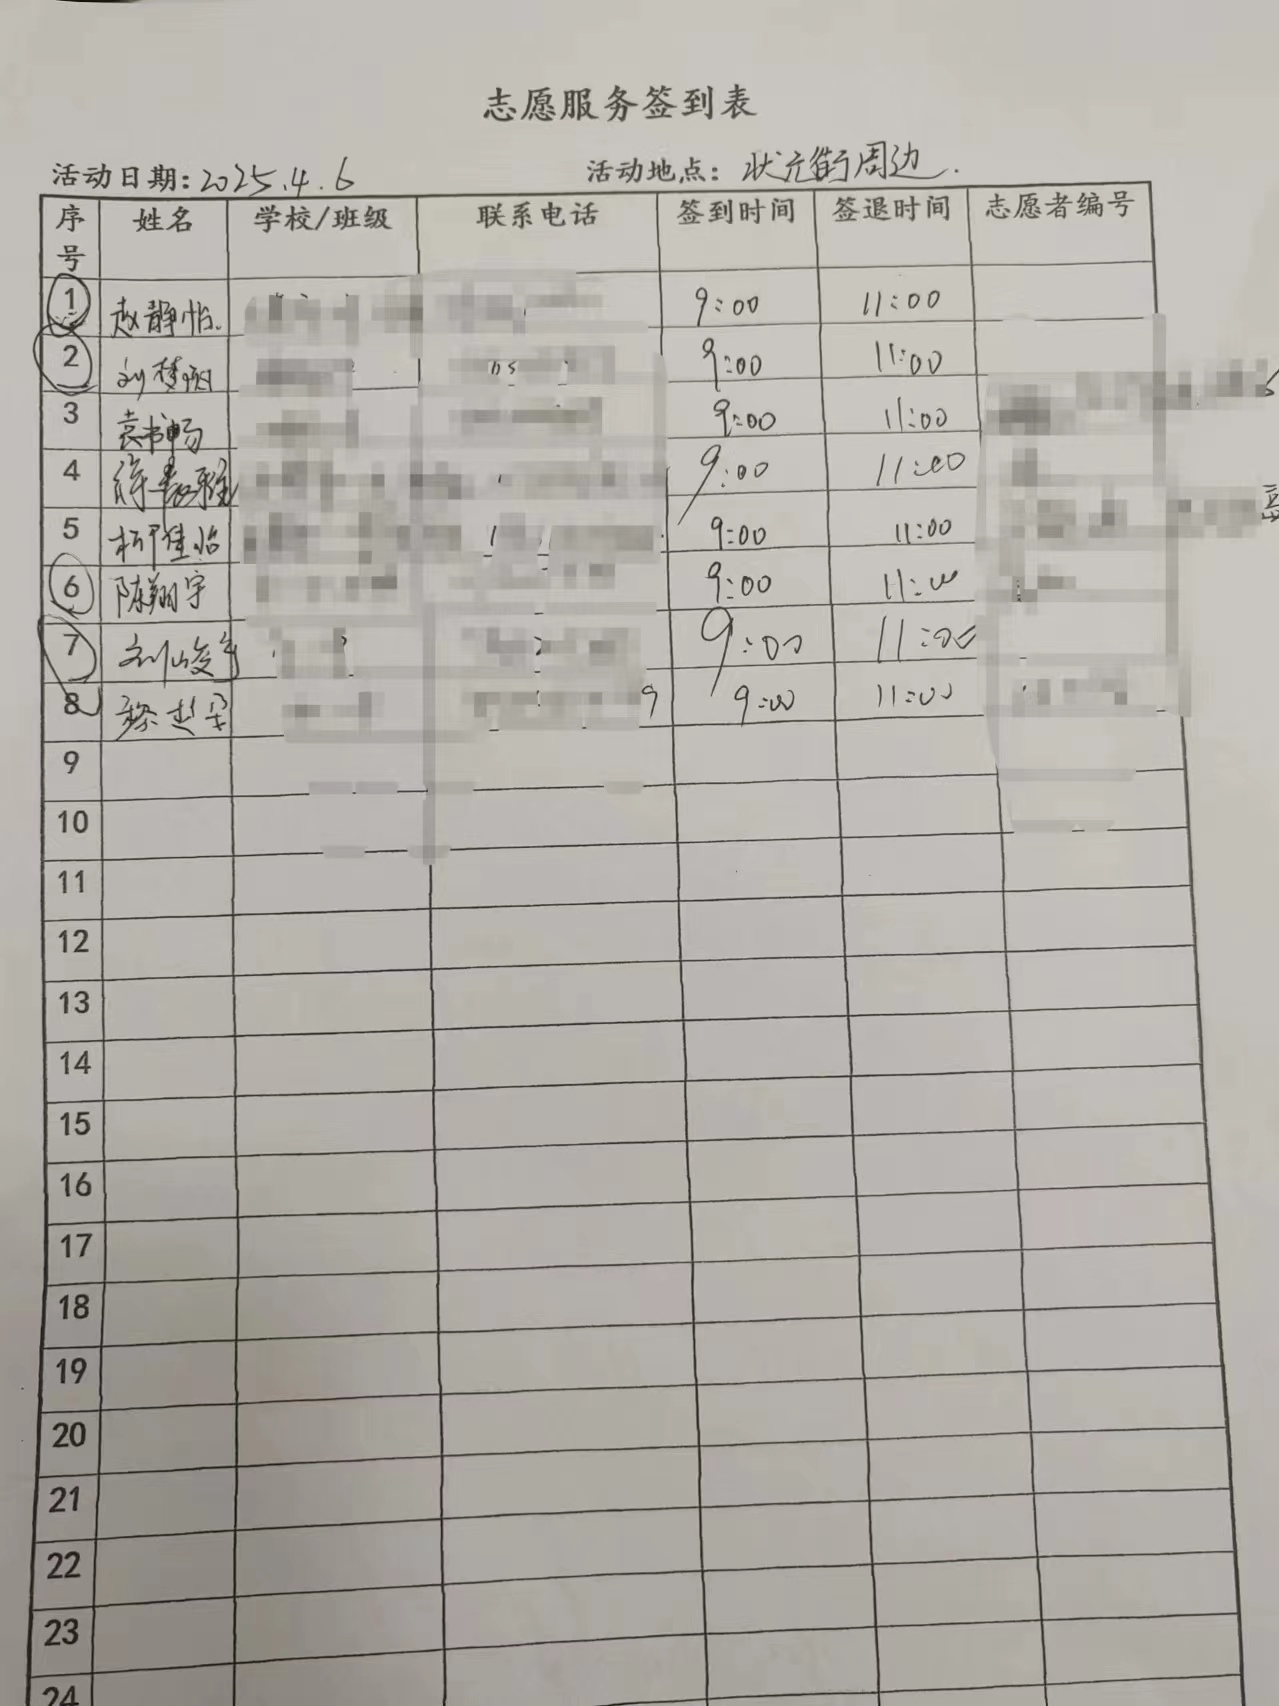 志愿服务签到表
活动日期:2025.4.6 活动地点:状元街周边.
序号 姓名 学校/班级 联系电话 签到时间 签退时间 志愿者编号
1 赵静怡. 9:00 11:00
2 刘梦 9:00 11:00
3 袁书畅 9:00 11:00
4 徐 雅 9:00 11:00
5 柯佳怡 9:00 11:00
6 陈翔宇 9:00 11:00
7 刘 9:00 11:00
8 9 9:00 11:00
9
10
11
12
13
14
15
16
17
18
19
20
21
22
23
24